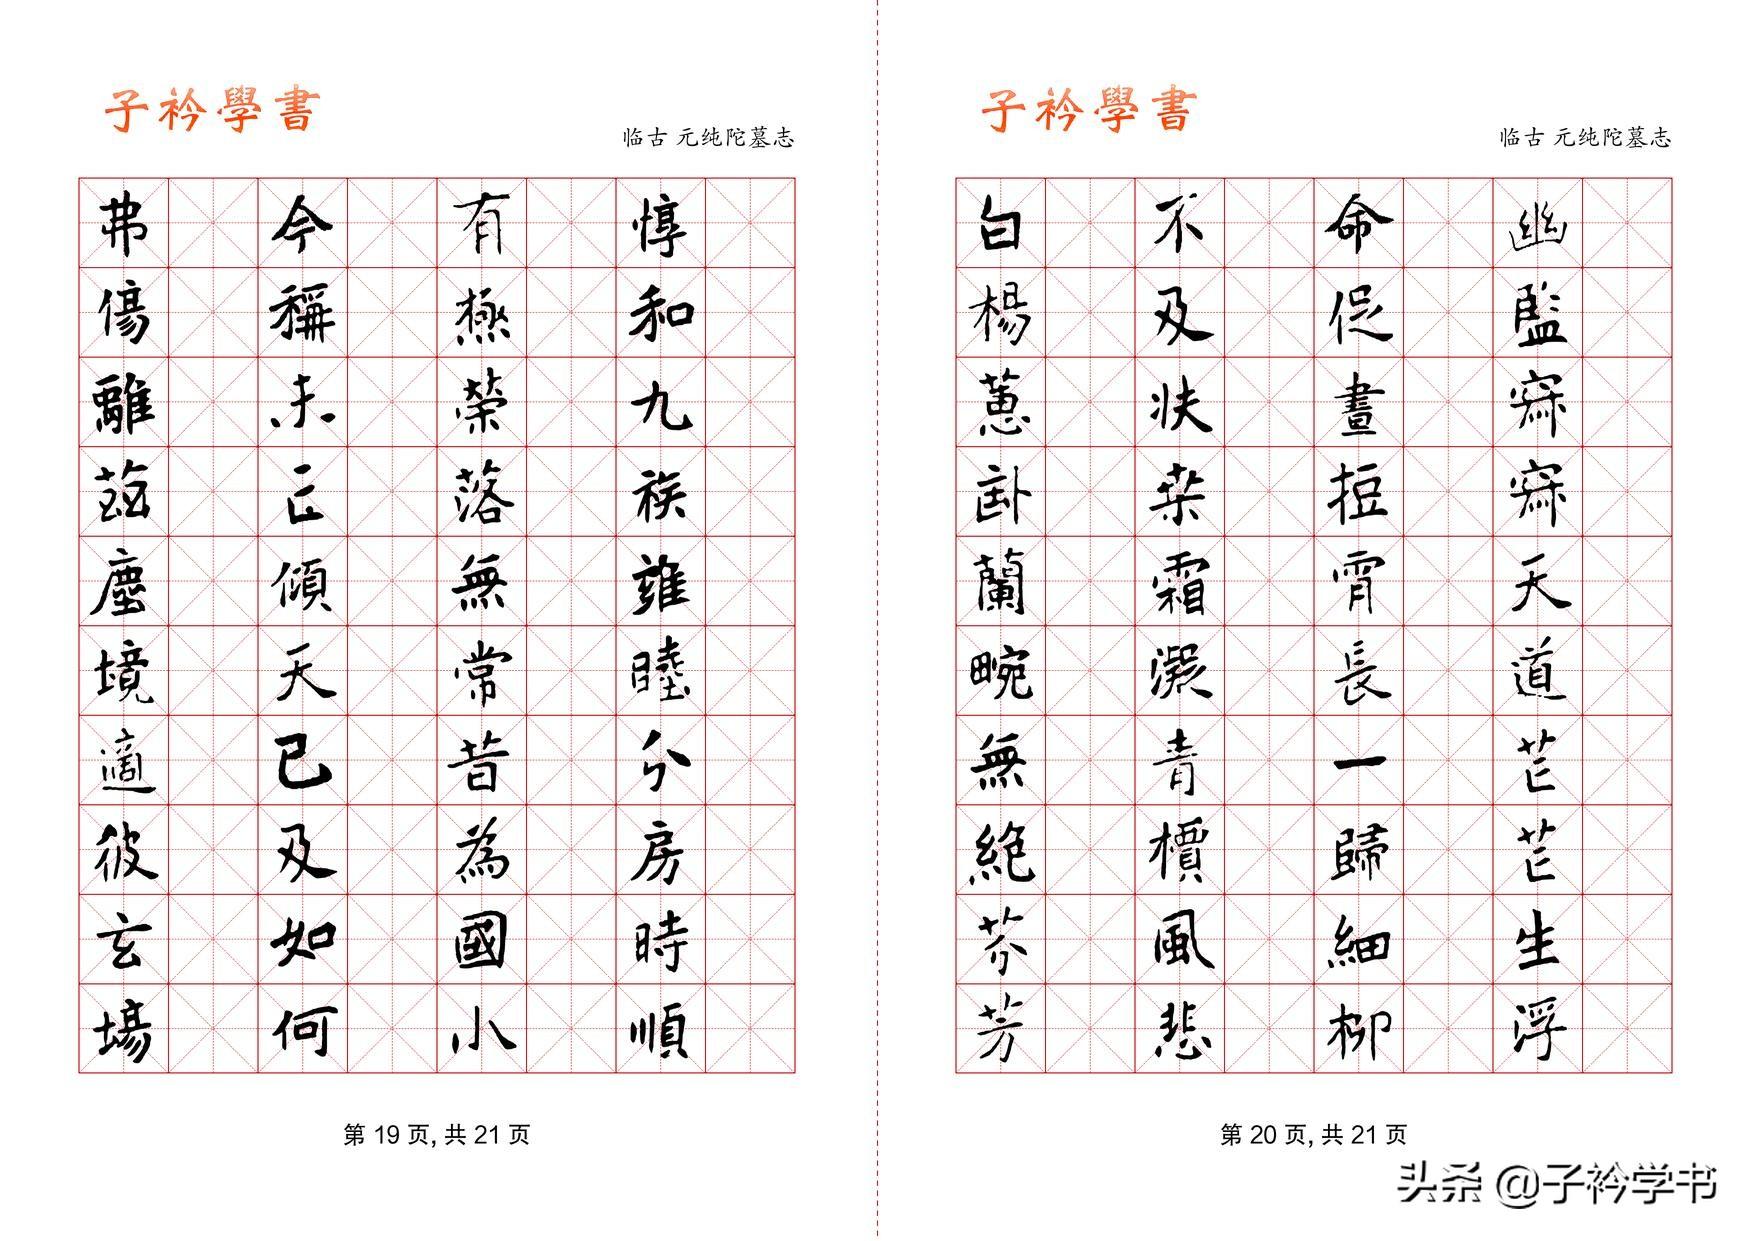 子衿學書
临古 元纯陀墓志
惇和九族雍睦分房時順
有極榮落無常昔為國小
今稱未亡傾天已及如何
弗傷離茲塵境適彼玄場
第 19 页, 共 21 页
子衿學書
临古 元纯陀墓志
幽監寂寂天道芒芒生浮
命促晝短宵長一歸細柳
不及扶桑霜凝青檟風悲
白楊蕙畝蘭畹無絕芬芳
第 20 页, 共 21 页
头条 @子衿学书